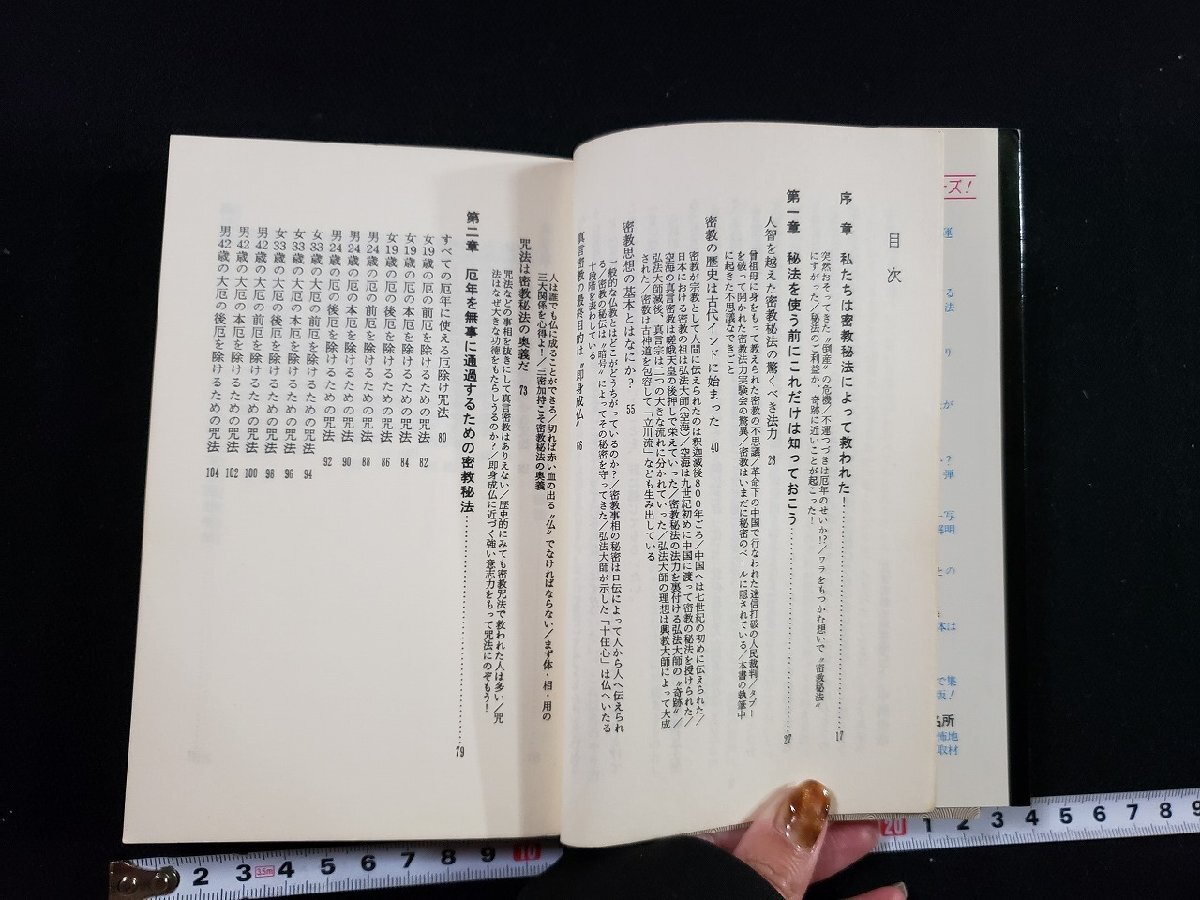 目次
序章 私たちは密教秘法によって救われた！ 17
突然おそってきた〝倒産〟の危機/不運つづきは厄年のせいか!?/ワラをもつかむ思いで〝密教秘法〟
にすがった/秘法のご利益か、奇跡に近いことが起こった！
第一章 秘法を使う前にこれだけは知っておこう 27
人智を越えた密教秘法の驚くべき法力 28
曽祖母に身をもって教えられた密教の不思議/革命下の中国で行なわれた迷信打破の人民裁判/タブー
を破って開かれた密教法力実験会の驚異/密教はいまだに秘密のベールに隠されている/本書の執筆中
に起きた不思議なできごと
密教の歴史は古代インドに始まった 40
密教が宗教として人間に伝えられたのは釈迦滅後800年ごろ/中国へは七世紀の初めに伝えられた/
日本における密教の祖は弘法大師(空海)/空海は九世紀初めに中国に渡って密教の秘法を授けられた/
空海の真言密教は嵯峨天皇の後押しで栄えていった/密教秘法の法力を裏付ける弘法大師の〝奇跡〟/
弘法大師滅後、真言宗は二つの大きな流れに分かれていった/弘法大師の理想は興教大師によって大成
された/密教は古神道を包容して「立川流」なども生み出している
密教思想の基本とはなにか？ 55
一般的な仏教とはどこがどうちがっているのか？/密教事相の秘密は口伝によって人から人へ伝えられ
る/密教の秘伝は〝暗号〟によってその秘密を守ってきた/弘法大師が示した「十住心」は仏へいたる
十段階を表わしている
真言密教の最終目的は〝即身成仏〟 66
人は誰でも仏に成ることができる/切れば赤い血の出る〝仏〟でなければならない/まず体・相・用の
三大関係を心得よ！/三密加持こそ密教秘法の奥義
咒法は密教秘法の奥義だ 73
咒法などの事相を抜きにして真言密教はありえない/歴史的にみても密教咒法で救われた人は多い/咒
法はなぜ大きな功徳をもたらしうるのか！/即身成仏に近づく強い意志力をもって咒法にのぞもう！
第二章 厄年を無事に通過するための密教秘法 79
すべての厄年に使える厄除け咒法 80
女19歳の厄の前厄を除けるための咒法 82
女19歳の厄の本厄を除けるための咒法 84
女19歳の厄の後厄を除けるための咒法 86
男24歳の厄の前厄を除けるための咒法 88
男24歳の厄の本厄を除けるための咒法 90
男24歳の厄の後厄を除けるための咒法 92
女33歳の大厄の前厄を除けるための咒法 94
女33歳の大厄の本厄を除けるための咒法 96
女33歳の大厄の後厄を除けるための咒法 98
男42歳の大厄の前厄を除けるための咒法 100
男42歳の大厄の本厄を除けるための咒法 102
男42歳の大厄の後厄を除けるための咒法 104
ーズ！
運
る
法
り
が
？
弾
写
解明
との
本は
で集
版！
名所
怖地
取材
2 3 3.5m 4 5 6 7 8 9 10
20 1 2 3 4 5 6 7 8 9